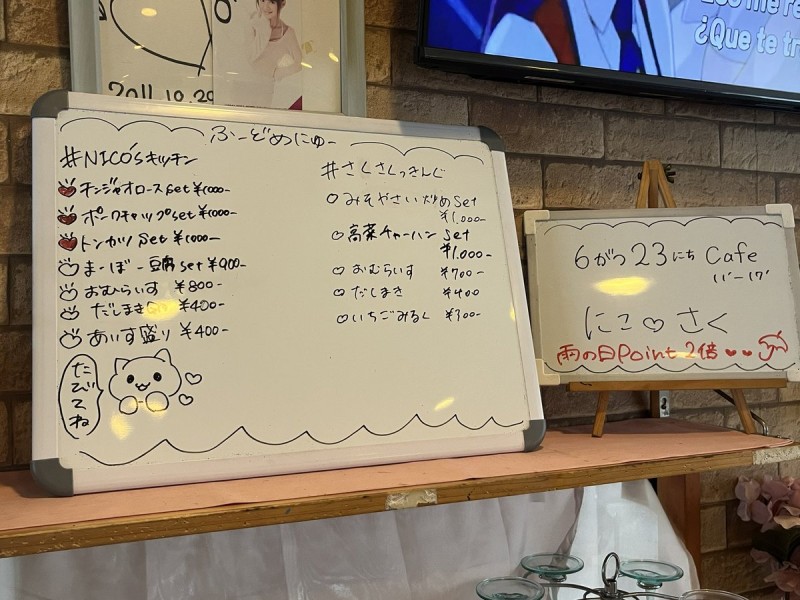 2011.10.29
Que te tr
¿Que te tr
ふーどめにゅー
#NICO'sキッチン
チンジャオロースset ¥1000-
ポークチャップset ¥1000-
トンカツ set ¥1000-
まーぼー豆腐set ¥900-
おむらいす ¥800-
だしまき ¥400-
あいす盛り ¥400-
たびてね
#さくさくっきんぐ
みそやさい炒めset
¥1,000-
高菜チャーハン set
¥1,000-
おむらいす ¥700-
だしまき ¥400
いちごみるく ¥300-
6がつ23にち Cafe
にこ♡さく
雨の日Point2倍